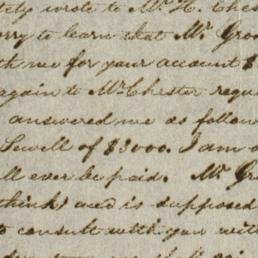 wrote to Mr. H. Ches
to learn that Mr. Gro
me for your account $
again to Mr Chester requ
answered me as follow
Sewell of $3000. I am o
ll ever be paid. Mr. Gr
think) aced is supposed
to consult with you wit